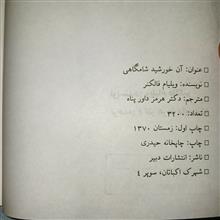 □ عنوان: آن خورشید شامگاهی
□ نویسنده: ویلیام فالکنر
□ مترجم: دکتر هرمز داور پناه
□ تعداد: ۳۲۰۰
□ چاپ اول: زمستان ۱۳۷۰
□ چاپ: چاپخانه حیدری
□ ناشر: انتشارات دبیر
□ شهرک اکباتان، سوپر ٤